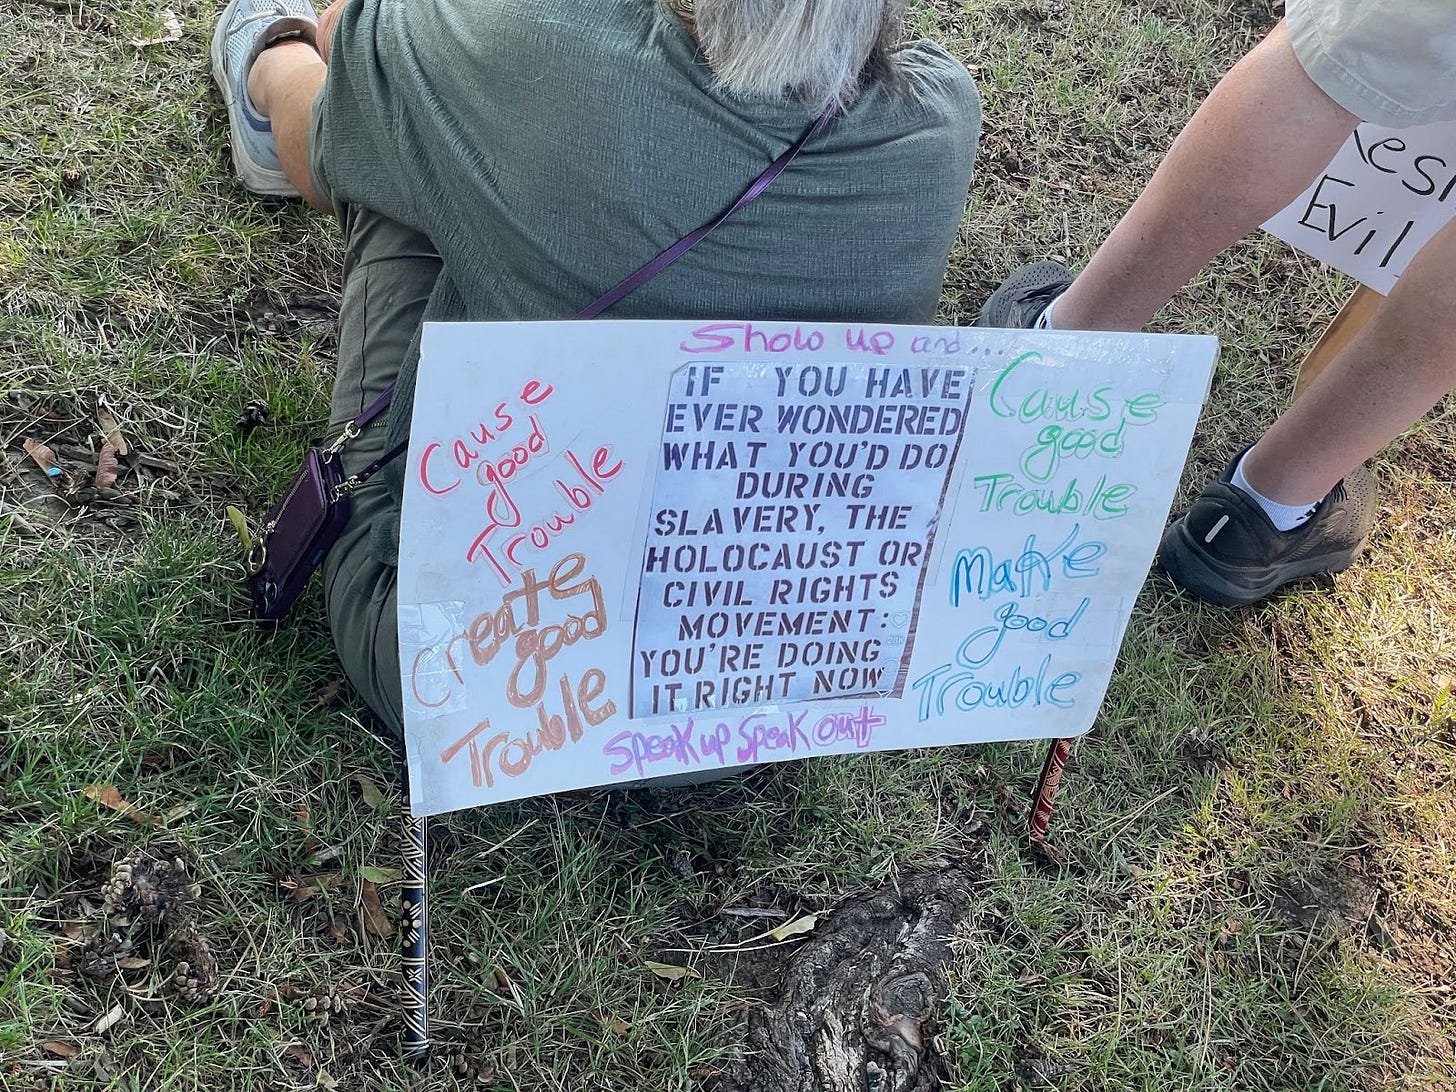 Show up and...
Cause
good
Trouble
Create
good
Trouble
IF YOU HAVE
EVER WONDERED
WHAT YOU'D DO
DURING
SLAVERY, THE
HOLOCAUST OR
CIVIL RIGHTS
MOVEMENT:
YOU'RE DOING
IT RIGHT NOW
Cause
good
Trouble
Make
good
Trouble
Speak up Speak out
Evil